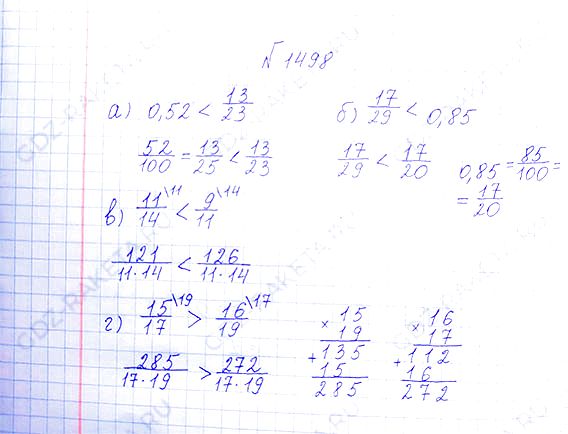 №1498
а) 0,52 < 13/23
52/100 = 13/25 < 13/23
б) 17/29 < 0,85
17/29 < 17/20
0,85 = 85/100 =
= 17/20
в) 11/14 \11 < 9/11 \14
121/11·14 < 126/11·14
г) 15/17 \19 > 16/19 \17
285/17·19 > 272/17·19
× 15
19
+ 135
15
285
× 16
17
+ 112
16
272
GDZ-RAKETA.RU